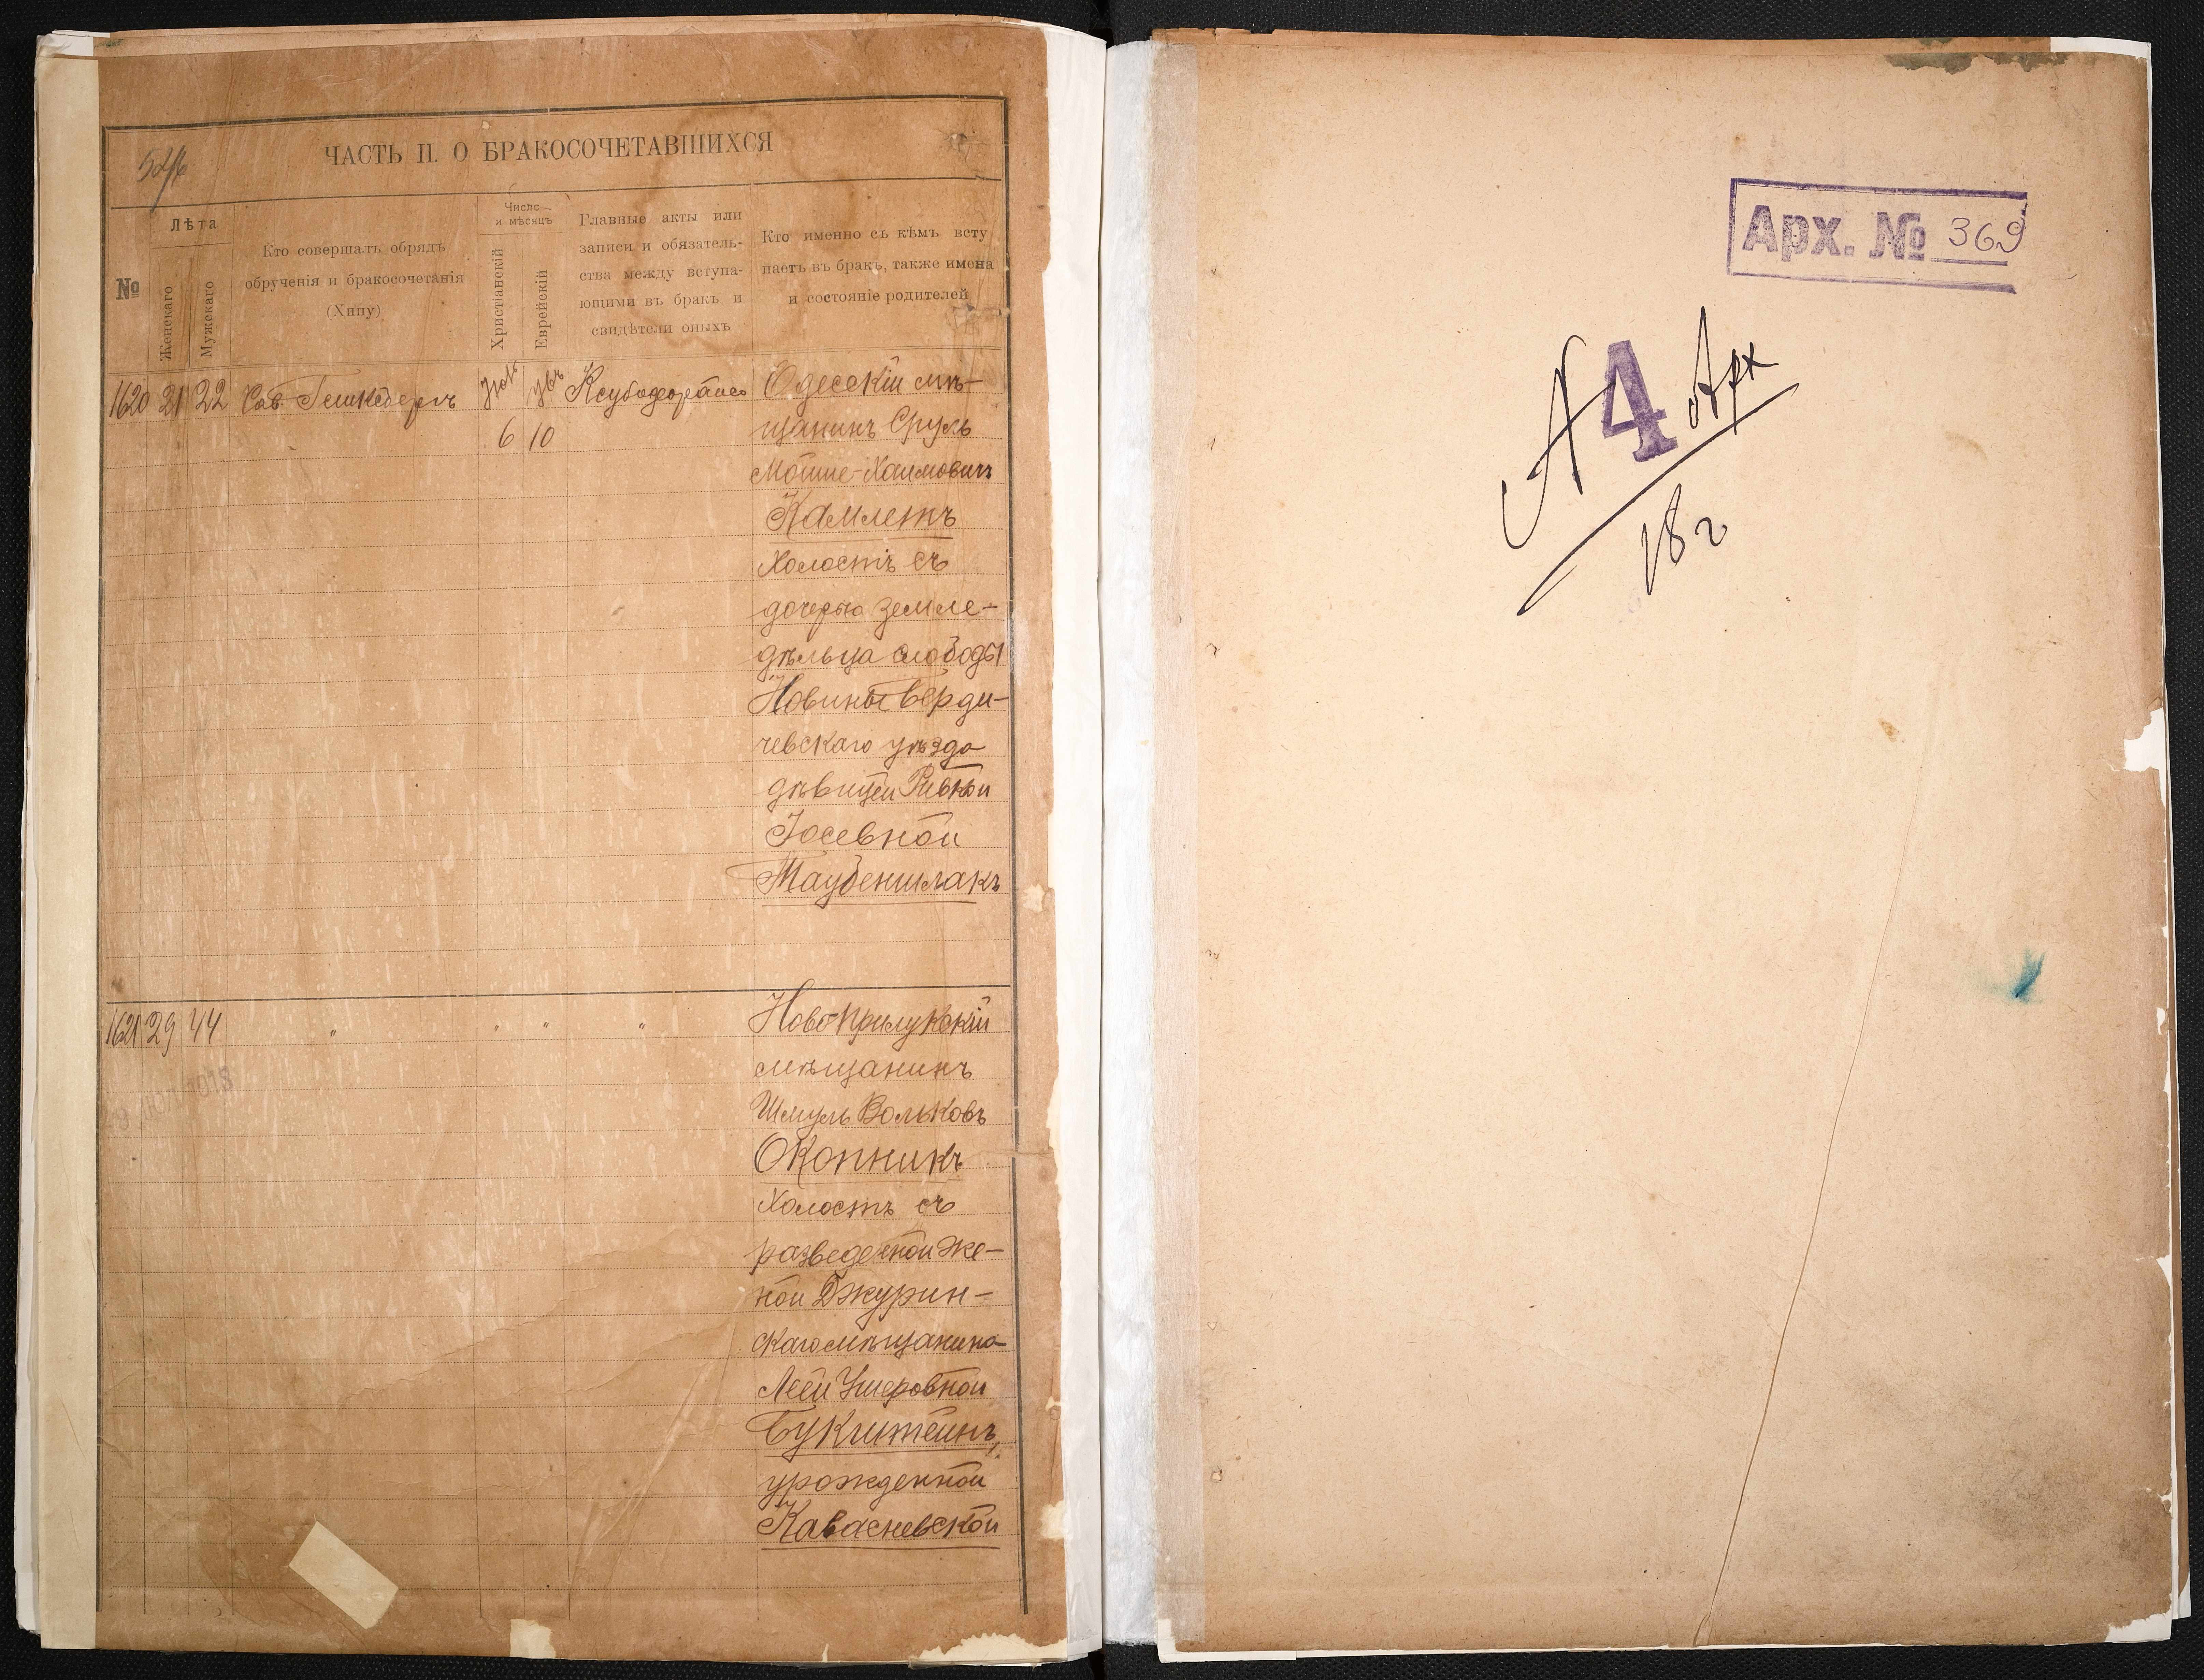 ЧАСТЬ II. О БРАКОСОЧЕТАВШИХСЯ
№
Лѣта
Женскаго
Мужскаго
Кто совершалъ обрядъ
обрученія и бракосочетанія
(Хипу)
Число
и мѣсяцъ
Христіанскій
Еврейскій
Главные акты или
записи и обязатель-
ства между вступа-
ющими въ бракъ и
свидѣтели оныхъ
Кто именно съ кѣмъ всту
паетъ въ бракъ, также имена
и состояніе родителей
1620 21 22
6 10
Одесскій мѣ-
щанинъ Сруль
Мошше-Хаимовичъ
Камлетъ
холостъ съ
дочерью земле-
дѣльца слободы
Новины Берди-
чевскаго уѣзда
дѣвицей Ривкой
Іосевной
Таубеншлакъ
1621 29 44 " " " "
Ново-Прилукскій
мѣщанинъ
Шмуль Вольковъ
Окопникъ
холостъ съ
разведенной же-
ной Джурин-
скаго мѣщанина
Леей Ушеровной
Букштейнъ,
урожденной
Кавасневской
Арх. № 369
А 4 Арх
18 г